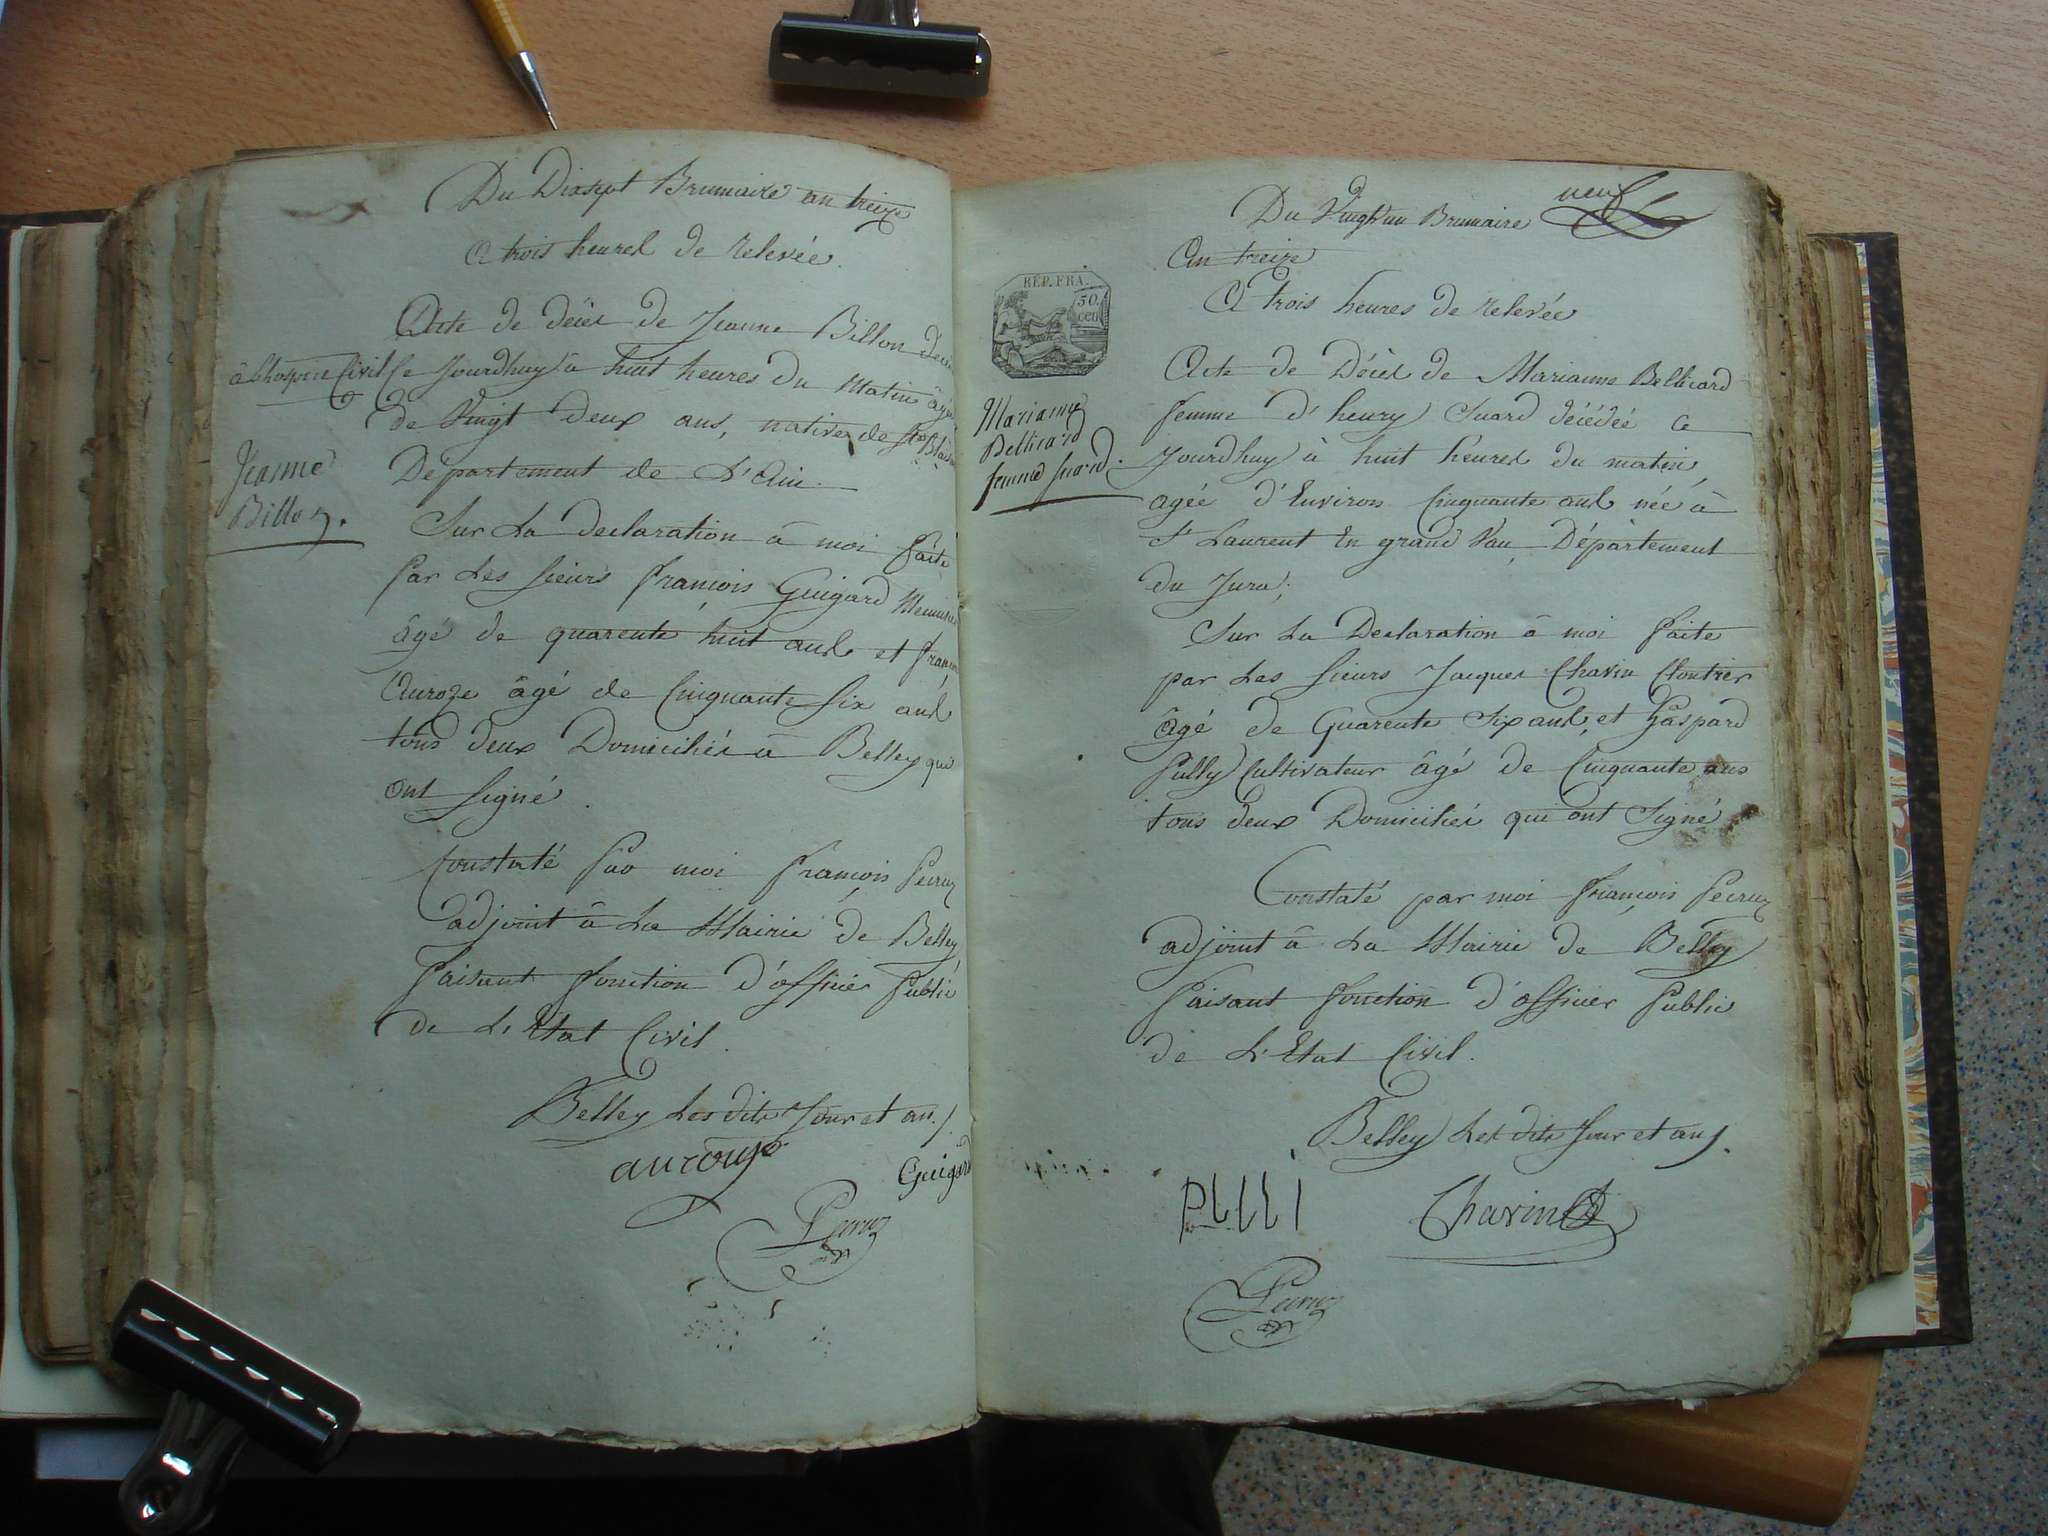 Du Dixsept Brumaire an treize
A trois heures de relevée.
Acte de décès de Jeanne Billon
à l'hospice Civil Ce Jourdhuy à huit heures du Matin âgée
de Vingt Deux ans, native de
Jeanne
Billon.
Département de L'Ain.
Sur La declaration à moi faite
par Les sieurs françois Guigard
âgé de quarente huit ans et
Auroze âgé de Cinquante Six ans
tous deux Domiciliés à Belley qui
ont signé.
Constaté par moi françois Pecruz
adjoint à La Mairie de Belley
faisant fonction d'officier Public
de L'Etat Civil.
Belley Les dits Jour et an.
aurouze
Guigard
Pecruz
neuf
Du Vingt un Brumaire
An treize
A trois heures de relevée
RÉP. FRA.
50.
cen
Acte de Décès de Marianne Bellicard
femme d'henry Suard décédée Ce
Marianne
Bellicard
femme Suard.
Jourdhuy à huit heures du matin,
agée d'Environ Cinquante ans née à
St Laurent En grand Vau Département
du Jura;
Sur La Declaration à moi faite
par Les sieurs Jacques Chavin Cloutier
âgé de Quarente Six ans, et Gaspard
Pully Cultivateur âgé de Cinquante ans
tous deux Domiciliés qui ont Signé
Constaté par moi françois Pecruz
adjoint à La Mairie de Belley
faisant fonction d'officier Public
de L'Etat Civil.
Belley Les dits Jour et an.
Chavin
Pecruz